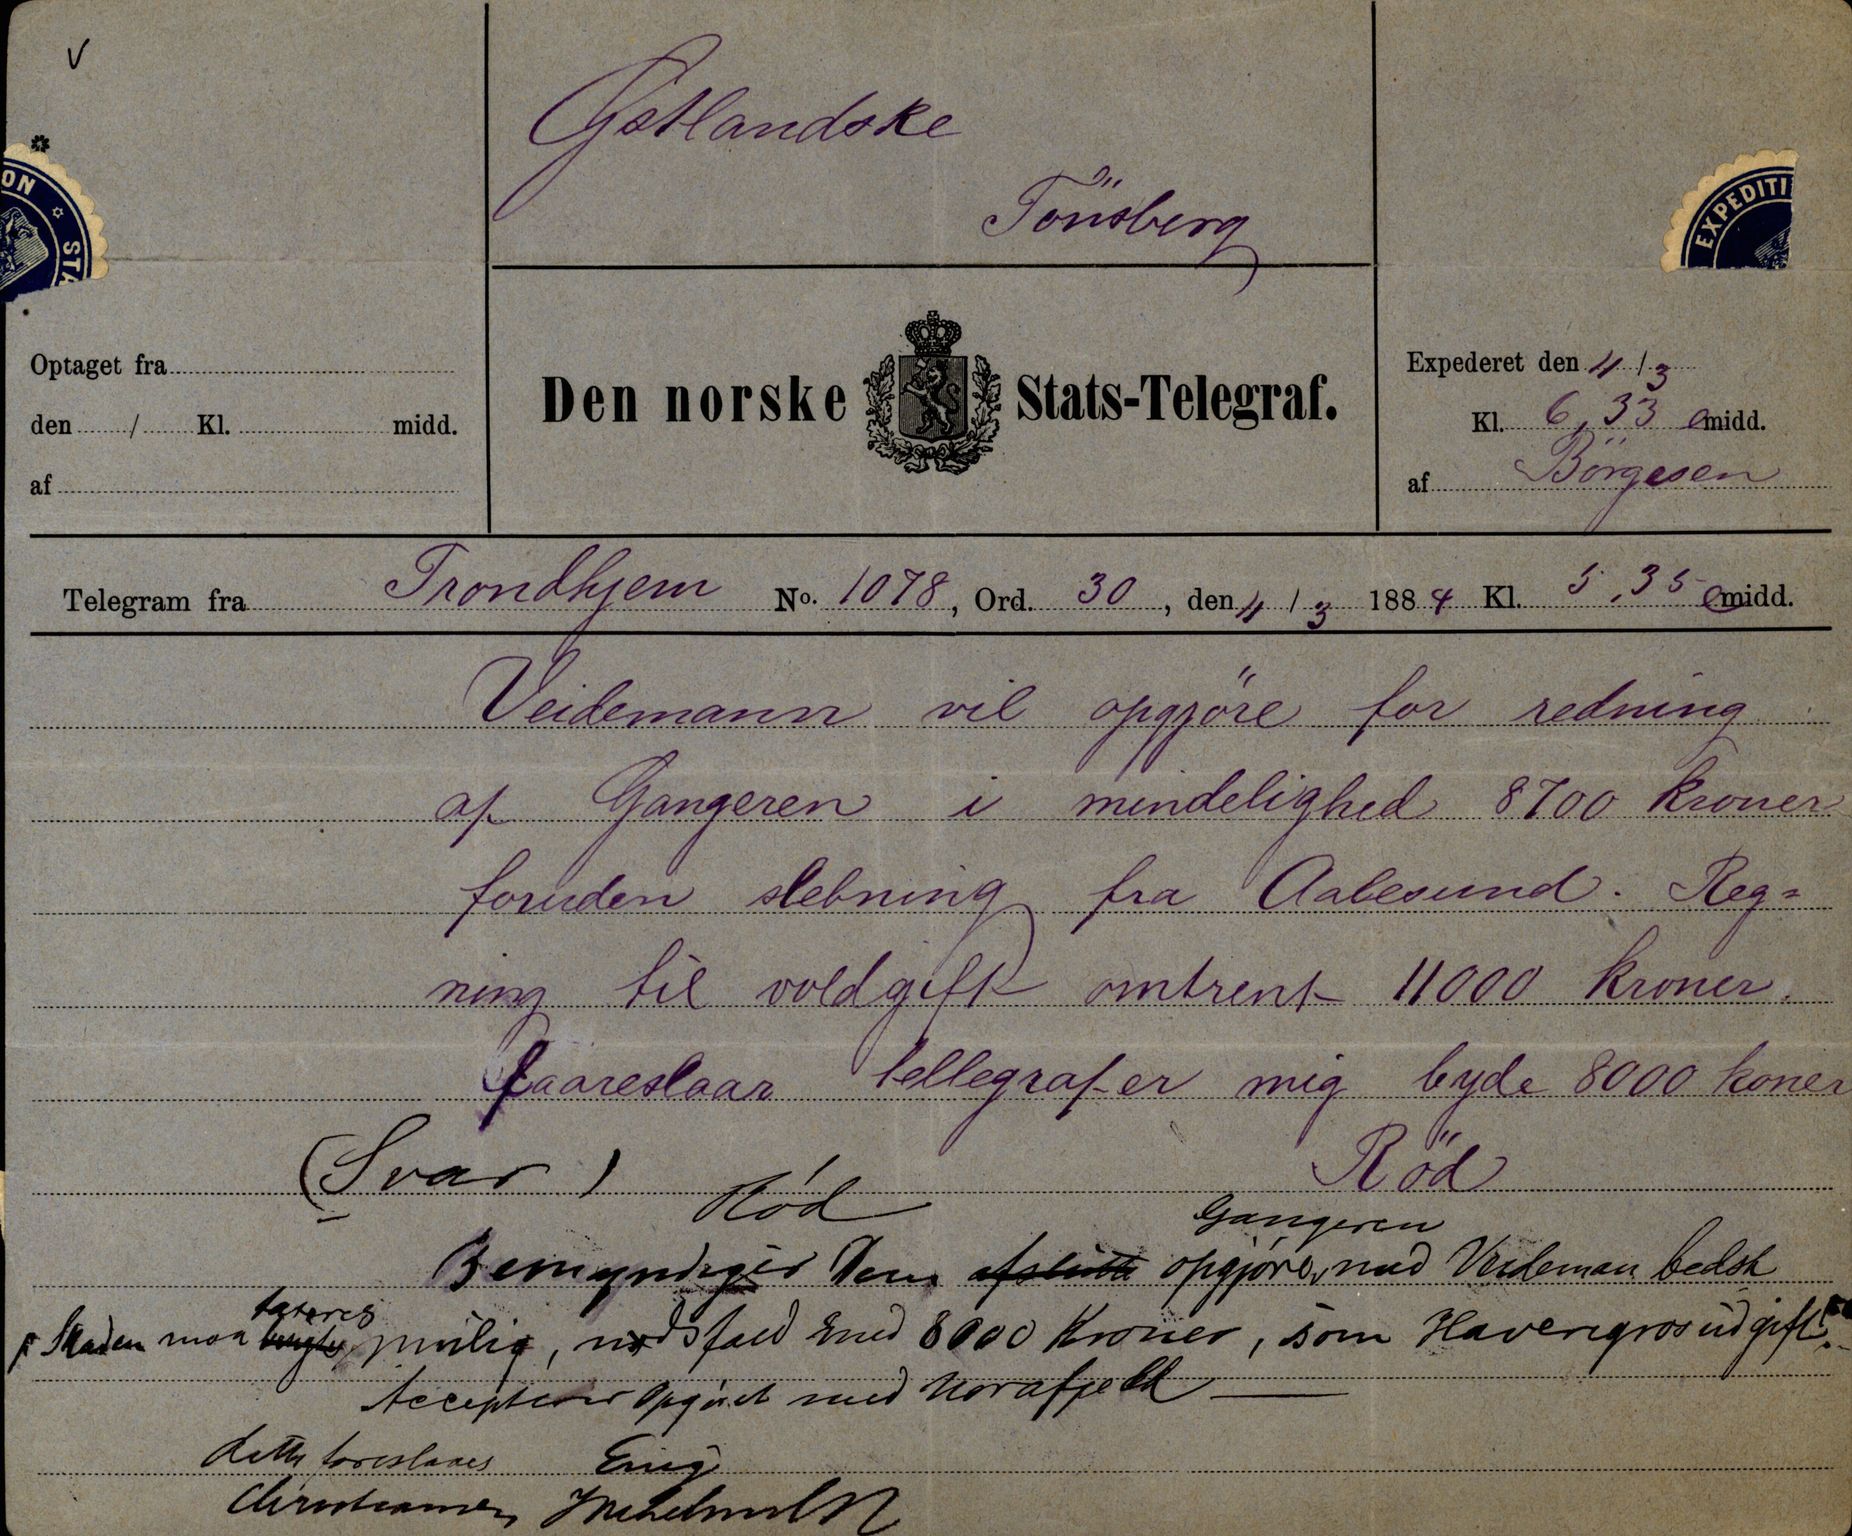 Østlandske
Tönsberg
ON ✡ STA
EXPEDITI
Optaget fra
den / Kl. midd.
af
Den norske Stats-Telegraf.
Expederet den 4/3
Kl. 6,33 emidd.
af Börgesen
Telegram fra Trondhjem No. 1078, Ord. 30, den 4/3 1884 Kl. 5,35 emidd.
Veidemann vil opgjöre for redning
af Gangeren i mindelighed 8700 kroner
foruden slebning fra Aalesund. Reg=
ning til voldgift omtrent 11000 kroner.
faareslaar tellegrafer mig byde 8000 koner
Röd
(Svar)
Rød
Gangeren
Bemyndiger Dem afslutte opgjøre, med Veideman bedst
taxeres
Skaden maa mulig, nødsfald med 8000 Kroner, som Haverigrosudgift.
Accepterer Opgjøret med Norafjeld
dette foreslaaes Enig
Christiansen